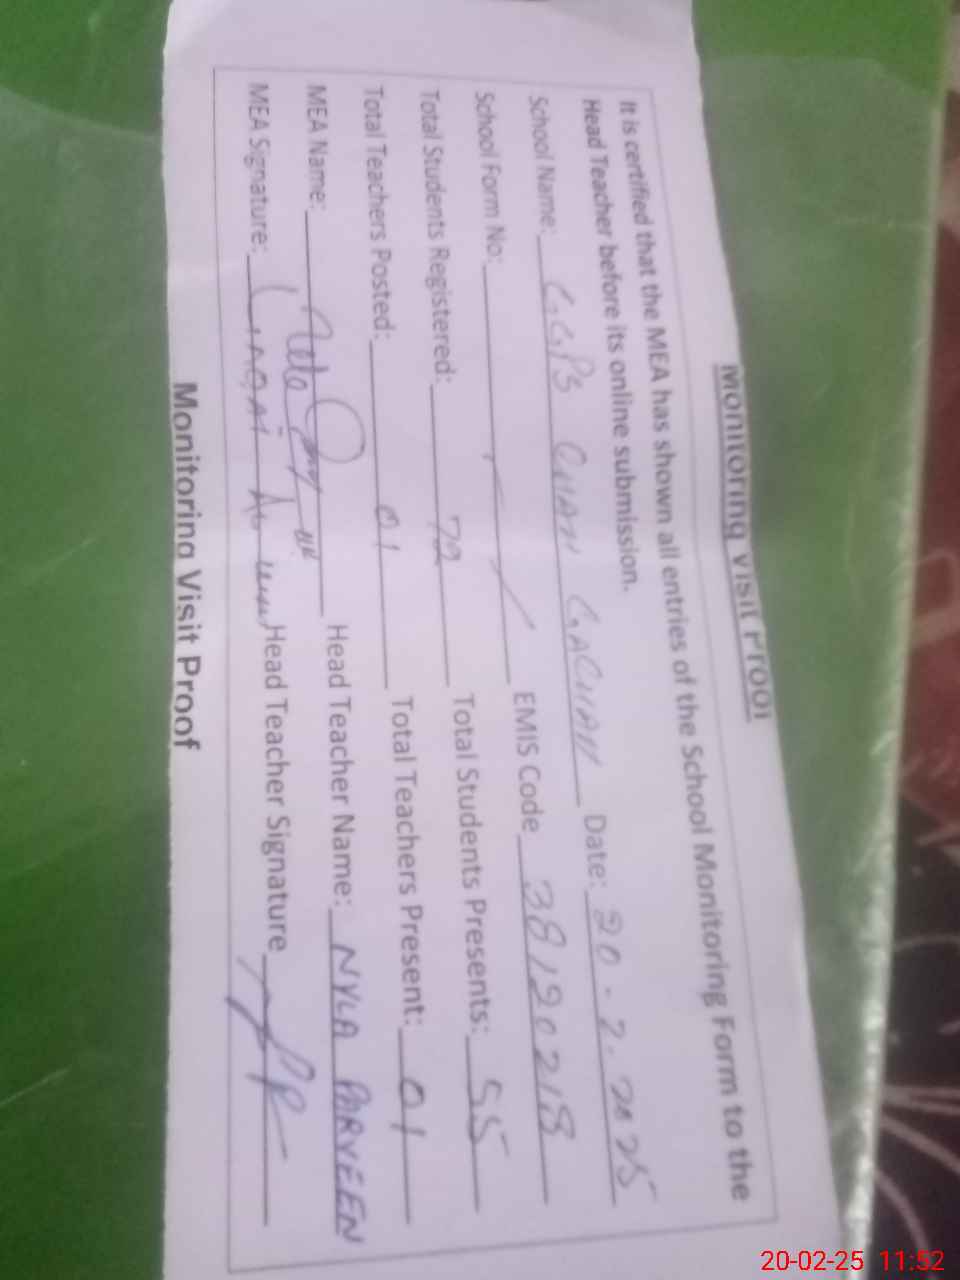 Monitoring Visit Proof
It is certified that the MEA has shown all entries of the School Monitoring Form to the
Head Teacher before its online submission.
School Name: GGPS CHAH GACHAH Date: 20-2-2025
School Form No: EMIS Code 38120218
Total Students Registered: 79 Total Students Presents: 55
Total Teachers Posted: 01 Total Teachers Present: 01
MEA Name: Head Teacher Name: NYLA PARVEEN
MEA Signature: Head Teacher Signature
Monitoring Visit Proof
20-02-25 11:52